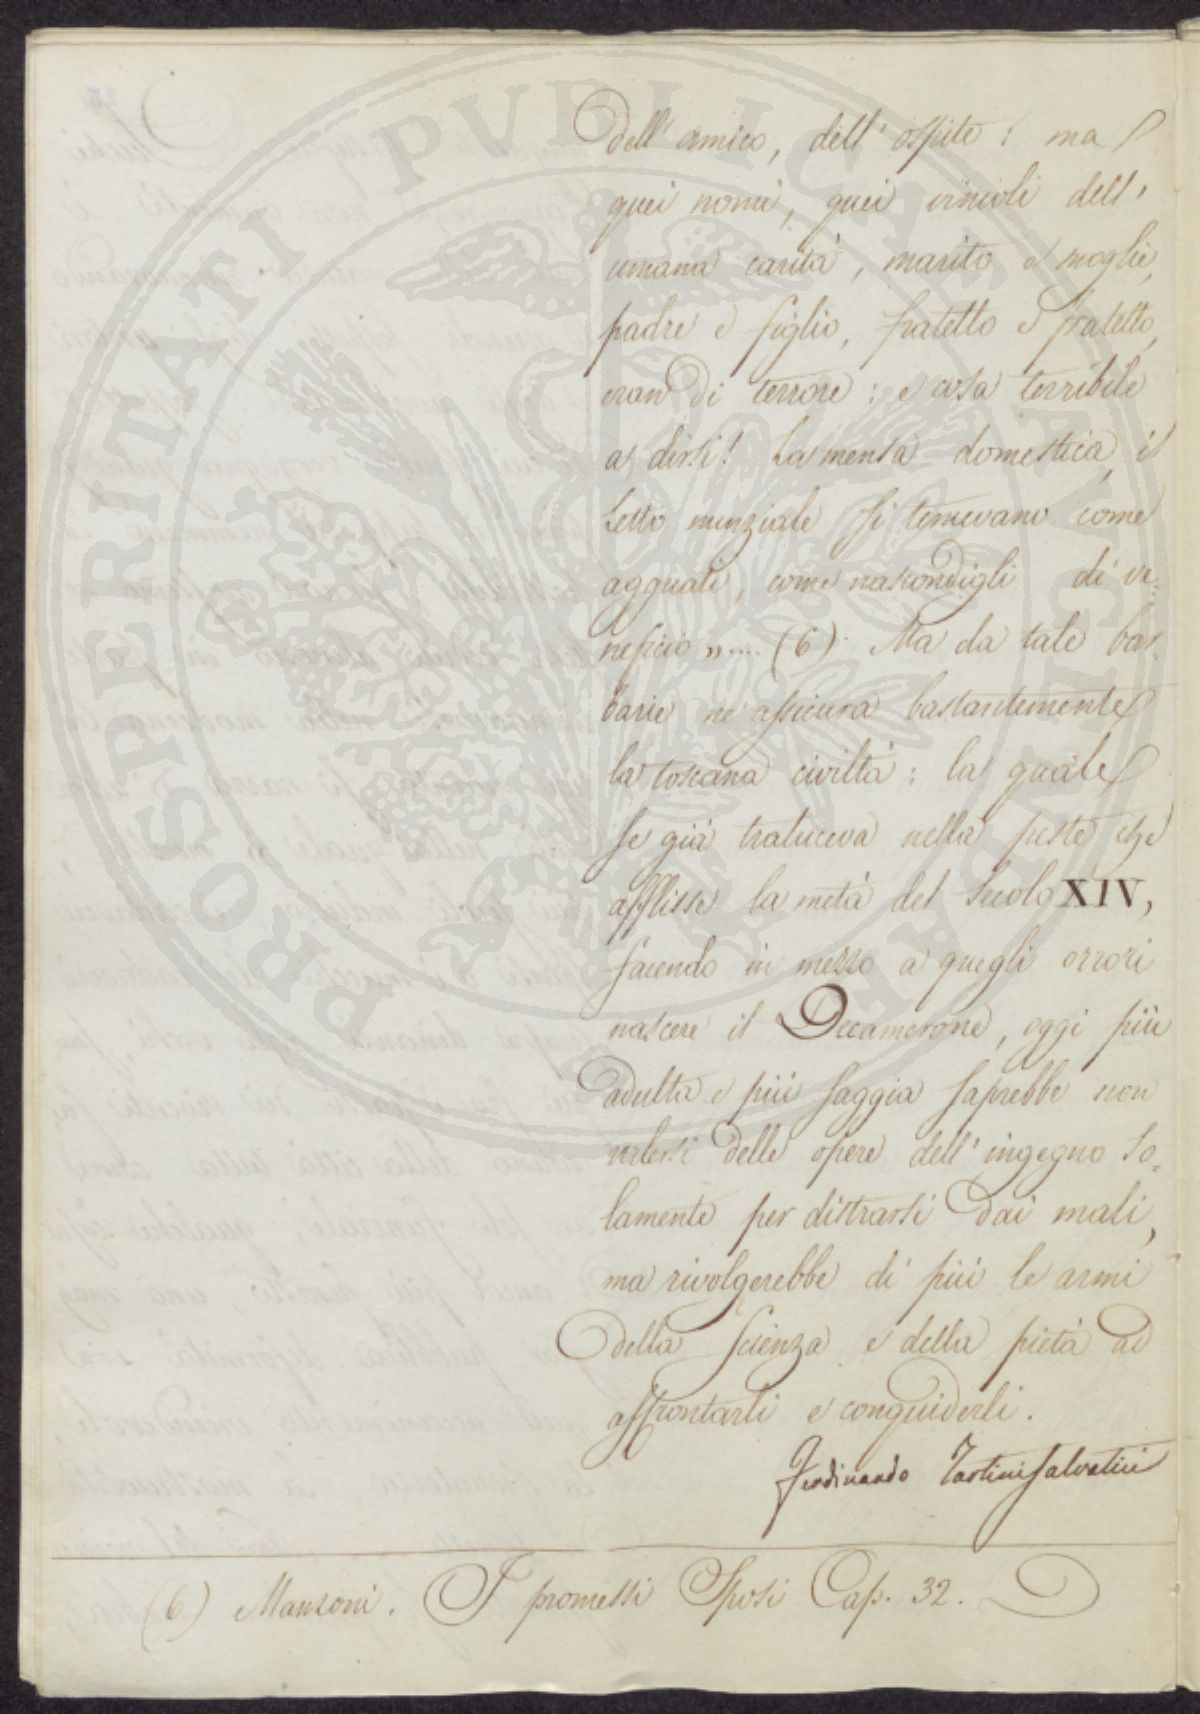 dell' amico, dell' ospite: ma
quei nomi, quei vincoli dell'
umana carità, marito e moglie,
padre e figlio, fratello e fratello,
eran di terrore: e cosa terribile
a dirsi! La mensa domestica, il
letto nunziale si temevano come
agguati, come nascondigli di ve-
neficio».... (6). Ma da tale bar-
barie ne assicura bastantemente
la toscana civiltà: la quale
se già traluceva nella peste che
afflisse la metà del Secolo XIV,
facendo in mezzo a quegli orrori
nascere il Decamerone, oggi più
adulta e più saggia saprebbe non
valersi delle opere dell' ingegno so-
lamente per distrarsi dai mali,
ma rivolgerebbe di più le armi
della Scienza e della pietà ad
affrontarli e conquiderli.
Ferdinando Tartini Salvatici
(6) Manzoni. I promessi Sposi Cap. 32.
PROSPERITATI PVBLICAE AVGENDAE